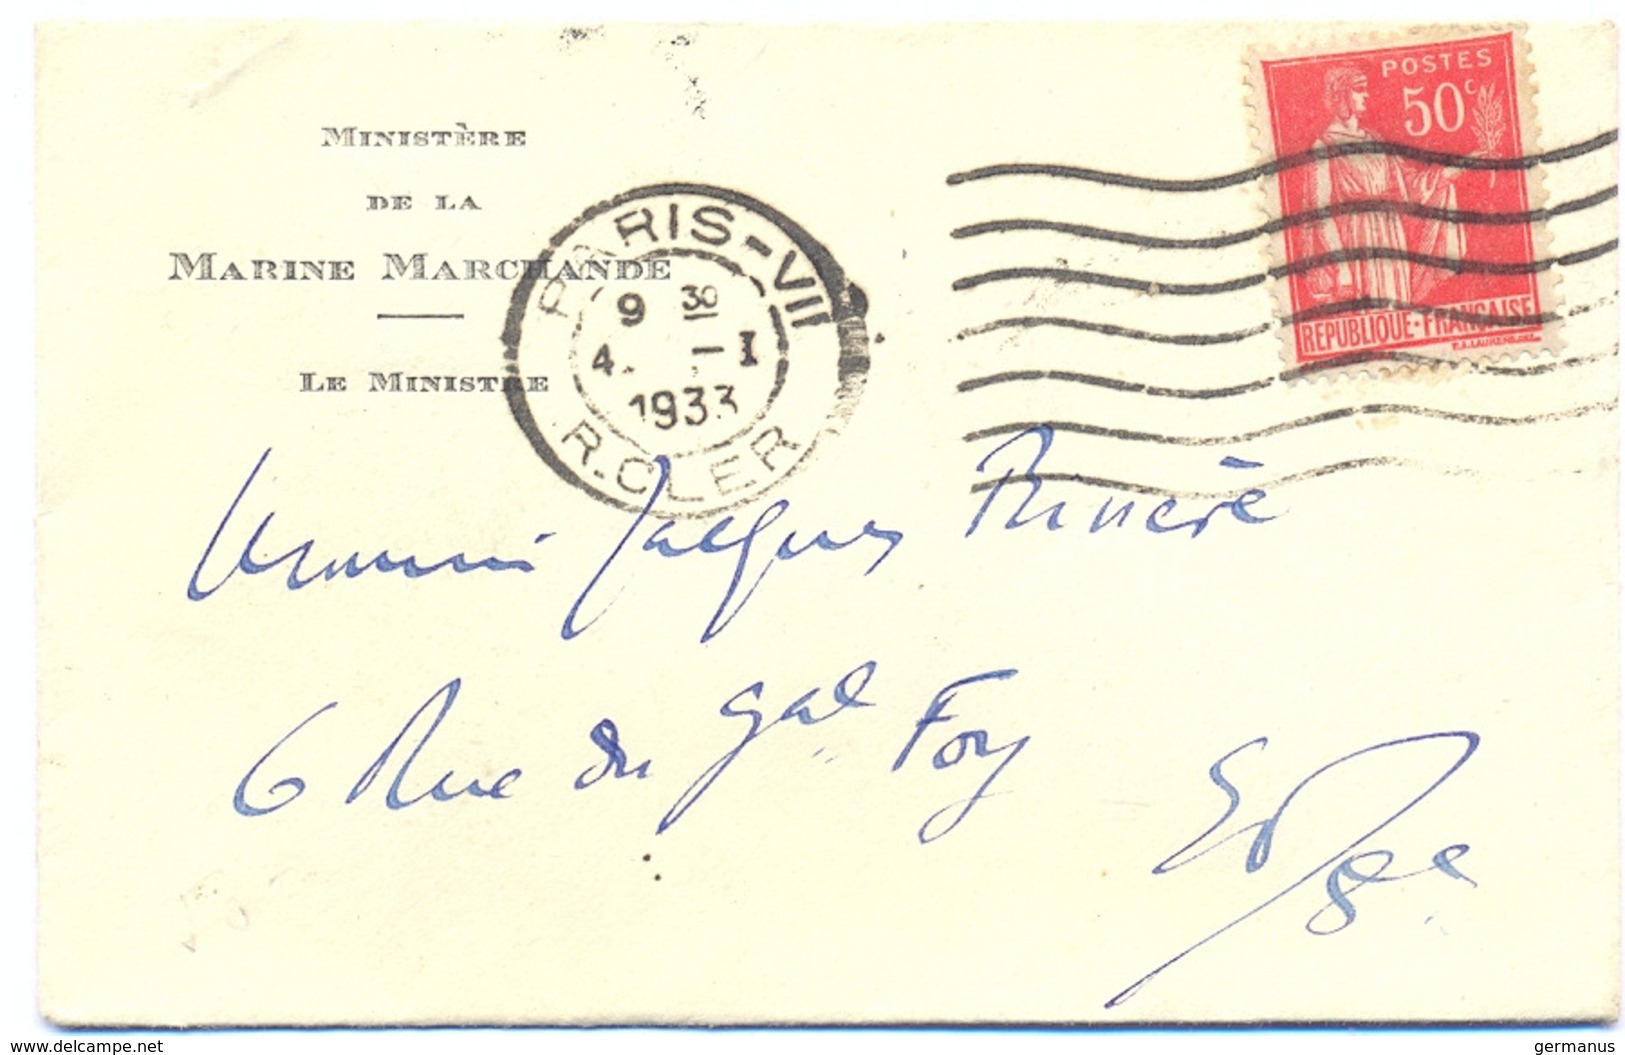 MINISTÈRE
DE LA
MARINE MARCHANDE
LE MINISTRE
PARIS-VII
9 30
4. -I
1933
R. CLER
POSTES
50c
REPUBLIQUE-FRANCAISE
Monsieur Jacques Rivière
6 Rue du Gal Foy
8e
www.delcampe.net
germanus